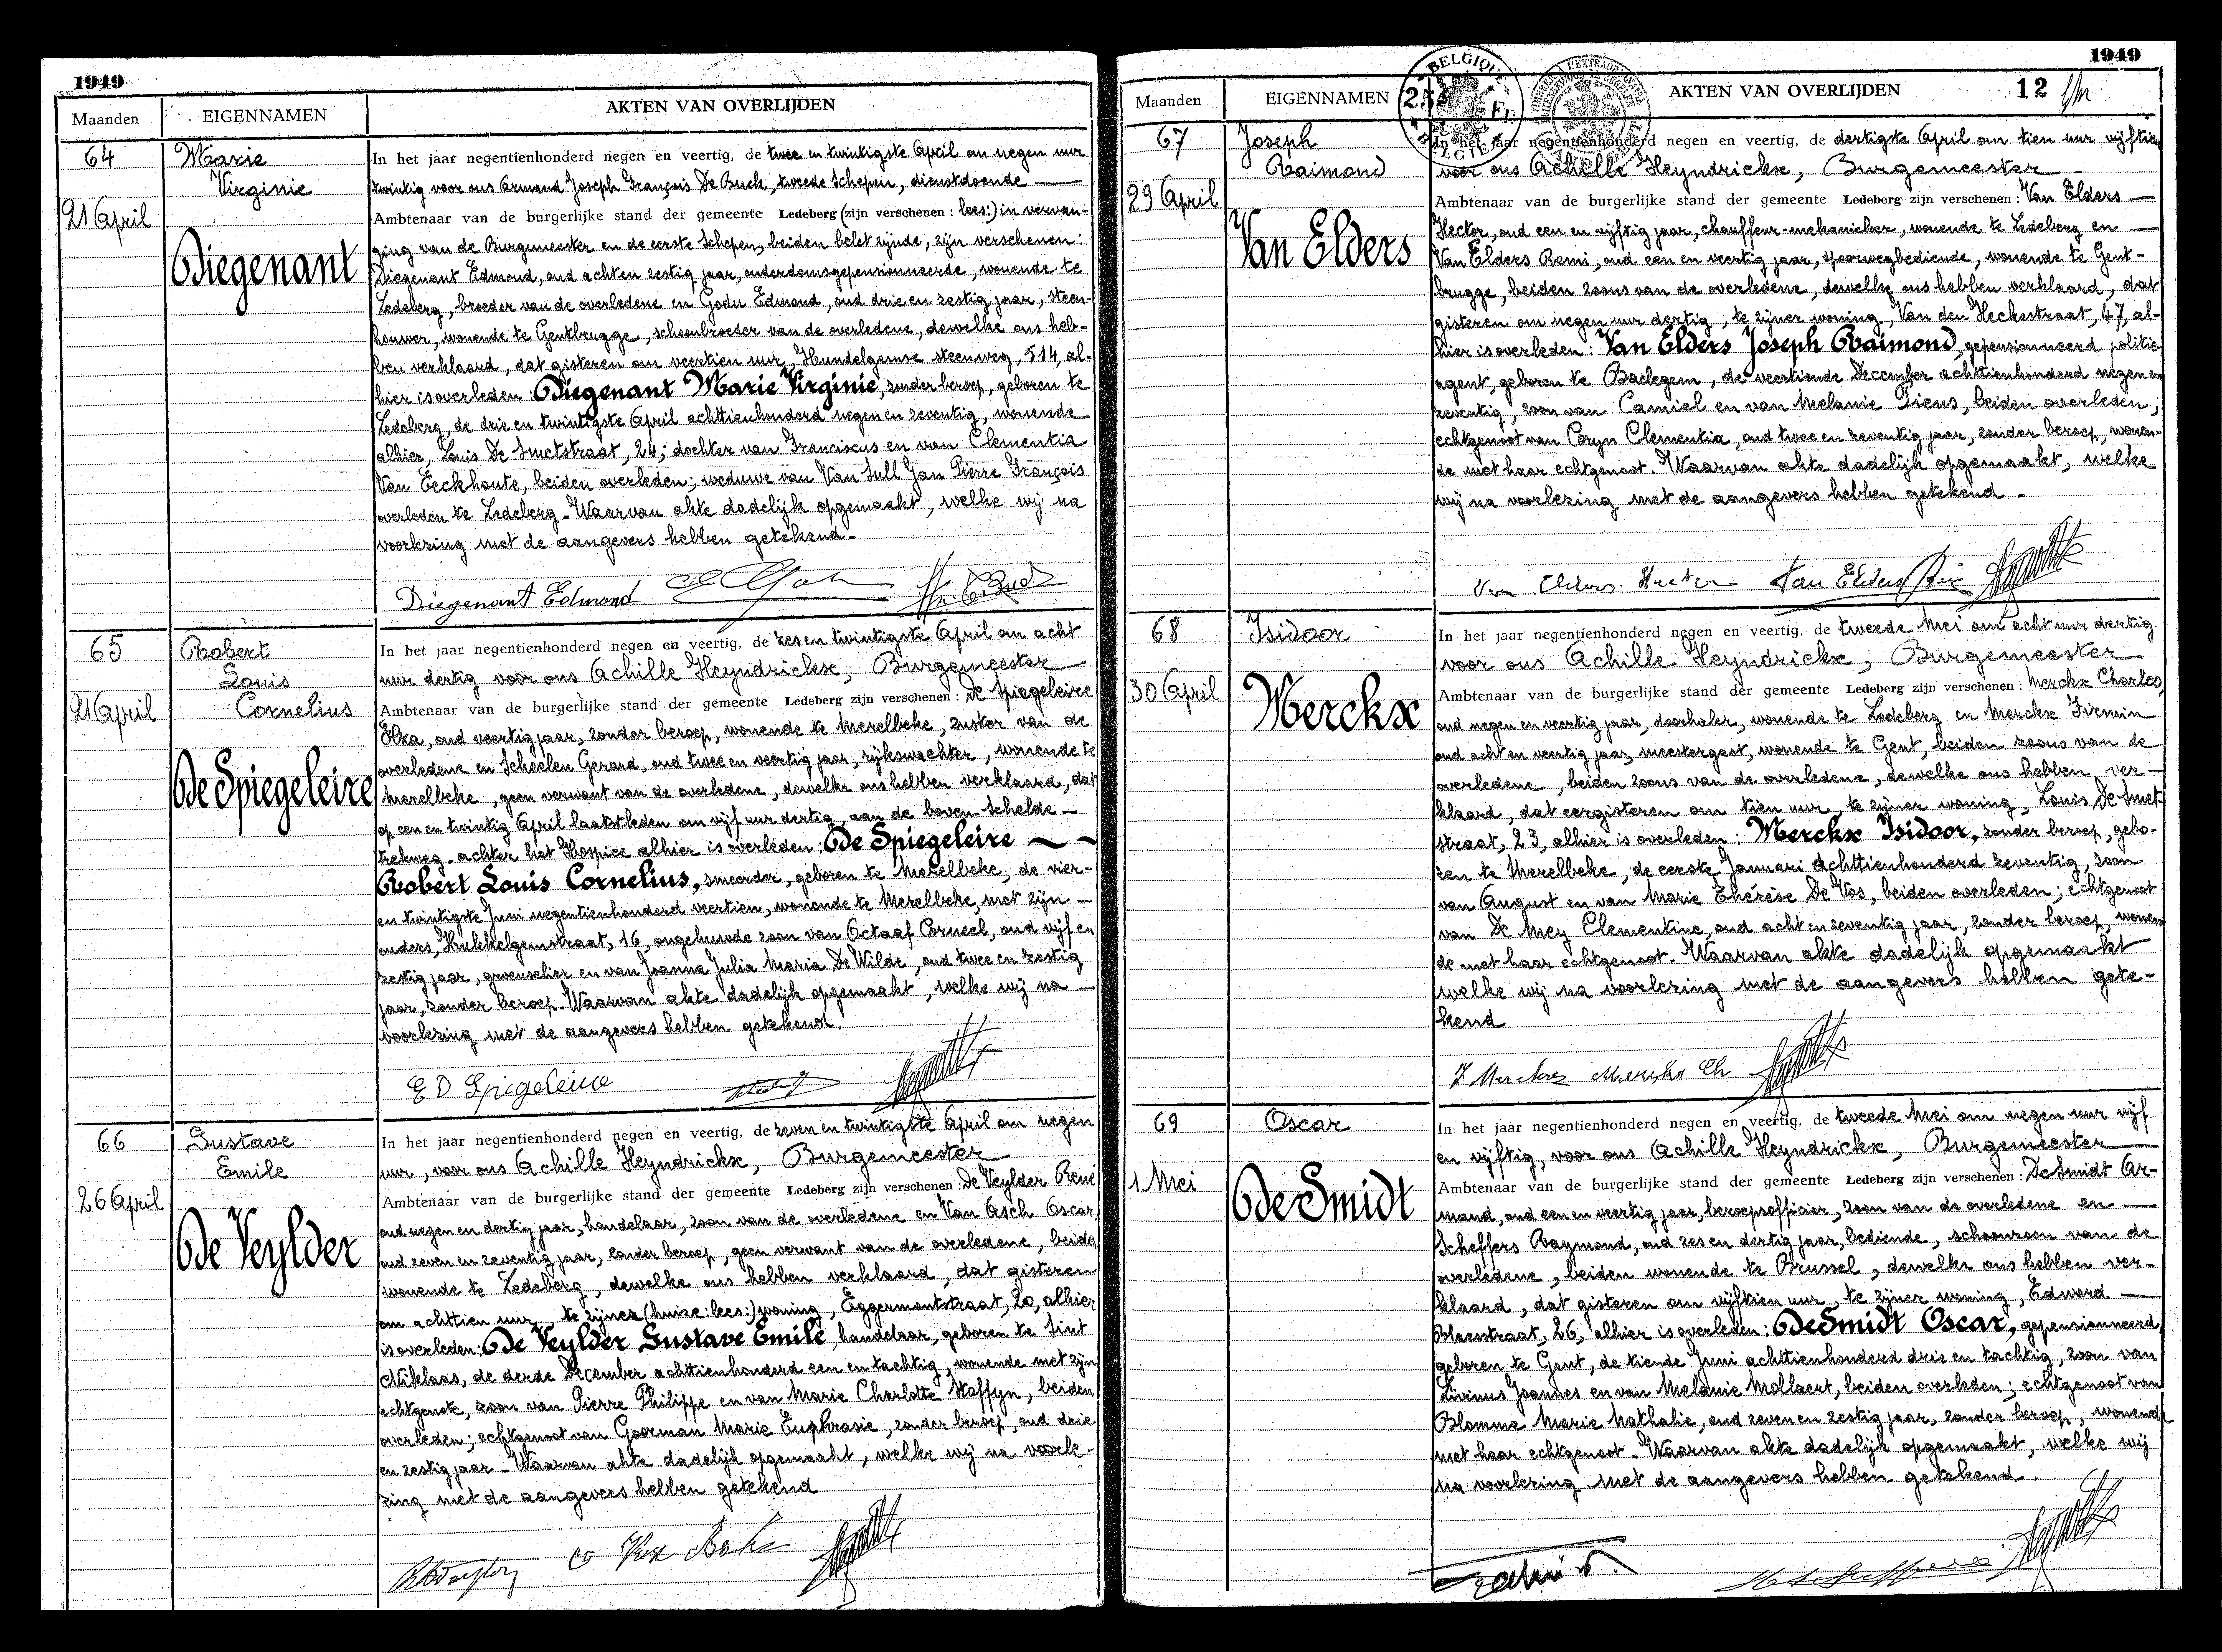 1949
Maanden
EIGENNAMEN
AKTEN VAN OVERLIJDEN
64
Marie
Virginie
21 April
Diegenant
In het jaar negentienhonderd negen en veertig, de twee en twintigste April om negen uur
twintig voor ons Armand Joseph François De Buck, tweede Schepen, dienstdoende
Ambtenaar van de burgerlijke stand der gemeente Ledeberg (zijn verschenen : lees:) in vervan-
ging van de Burgemeester en de eerste Schepen, beiden belet zijnde, zijn verschenen :
Diegenant Edmond, oud acht en zestig jaar, ouderdomsgepensionneerde, wonende te
Ledeberg, broeder van de overledene en Godu Edmond, oud drie en zestig jaar, steen-
houwer, wonende te Gentbrugge, schoonbroeder van de overledene, dewelke ons heb-
ben verklaard, dat gisteren om veertien uur, Hundelgemse steenweg, 514, al-
hier is overleden : Diegenant Marie Virginie, zonder beroep, geboren te
Ledeberg, de drie en twintigste April achttienhonderd negen en zeventig, wonende
alhier, Louis De Smetstraat, 24; dochter van Franciscus en van Clementia
Van Eeckhoute, beiden overleden; weduwe van Van Sull Jan Pierre François
overleden te Ledeberg. Waarvan akte dadelijk opgemaakt, welke wij na
voorlezing met de aangevers hebben getekend.
Diegenant Edmond
65
Robert
Louis
Cornelius
21 April
De Spiegeleire
In het jaar negentienhonderd negen en veertig, de zes en twintigste April om acht
uur dertig voor ons Achille Heyndrickx, Burgemeester
Ambtenaar van de burgerlijke stand der gemeente Ledeberg zijn verschenen : De Spiegeleire
Elza, oud veertig jaar, zonder beroep, wonende te Merelbeke, zuster van de
overledene en Scheelen Gerard, oud twee en veertig jaar, rijkswachter, wonende te
Merelbeke, geen verwant van de overledene, dewelke ons hebben verklaard, dat
op een en twintig April laatstleden om vijf uur dertig, aan de boven-Schelde
trekweg, achter het Hospice alhier is overleden : De Spiegeleire
Robert Louis Cornelius, smeerder, geboren te Merelbeke, de vier-
en twintigste Juni negentienhonderd veertien, wonende te Merelbeke, met zijn
ouders, Hukkelgemstraat, 16, ongehuwde zoon van Octaaf Corneel, oud vijf en
zestig jaar, groenselier en van Joanna Julia Maria De Wilde, oud twee en zestig
jaar, zonder beroep. Waarvan akte dadelijk opgemaakt, welke wij na
voorlezing met de aangevers hebben getekend.
E D Spiegeleire
66
Gustave
Emile
26 April
De Veylder
In het jaar negentienhonderd negen en veertig, de zeven en twintigste April om negen
uur, voor ons Achille Heyndrickx, Burgemeester
Ambtenaar van de burgerlijke stand der gemeente Ledeberg zijn verschenen : De Veylder René
oud negen en dertig jaar, handelaar, zoon van de overledene en Van Asch Oscar,
oud zeven en zeventig jaar, zonder beroep, geen verwant van de overledene, beide
wonende te Ledeberg, dewelke ons hebben verklaard, dat gisteren
om achttien uur, te zijner (huize : lees :) woning, Eggermontstraat, 20, alhier
is overleden : De Veylder Gustave Emile, handelaar, geboren te Sint
Niklaas, de derde December achttienhonderd een en tachtig, wonende met zijn
echtgenote, zoon van Pierre Philippe en van Marie Charlotte Staffyn, beiden
overleden; echtgenoot van Goorman Marie Euphrasie, zonder beroep, oud drie
en zestig jaar. Waarvan akte dadelijk opgemaakt, welke wij na voorle-
zing met de aangevers hebben getekend
1949
Maanden
EIGENNAMEN
BELGIQUE
25 Fr
BELGIE
AKTEN VAN OVERLIJDEN
12
67
Joseph
Raimond
29 April
Van Elders
In het jaar negentienhonderd negen en veertig, de dertigste April om tien uur vijftien
voor ons Achille Heyndrickx, Burgemeester
Ambtenaar van de burgerlijke stand der gemeente Ledeberg zijn verschenen : Van Elders
Hector, oud een en vijftig jaar, chauffeur-mekanieker, wonende te Ledeberg en
Van Elders Remi, oud een en veertig jaar, spoorwegbediende, wonende te Gent-
brugge, beiden zoons van de overledene, dewelke ons hebben verklaard, dat
gisteren om negen uur dertig, te zijner woning, Van den Heckestraat, 47, al-
hier is overleden : Van Elders Joseph Raimond, gepensionneerd politie-
agent, geboren te Badegem, de veertiende December achttienhonderd negen en
zeventig, zoon van Camiel en van Melanie Piens, beiden overleden;
echtgenoot van Coryn Clementia, oud twee en zeventig jaar, zonder beroep, wonen-
de met haar echtgenoot. Waarvan akte dadelijk opgemaakt, welke
wij na voorlezing met de aangevers hebben getekend.
Van Elders Hector Van Elders
68
Isidoor
30 April
Merckx
In het jaar negentienhonderd negen en veertig, de tweede Mei om acht uur dertig
voor ons Achille Heyndrickx, Burgemeester
Ambtenaar van de burgerlijke stand der gemeente Ledeberg zijn verschenen : Merckx Charles,
oud negen en veertig jaar, doorhaler, wonende te Ledeberg en Merckx Firmin
oud acht en veertig jaar, meestergast, wonende te Gent, beiden zoons van de
overledene, beiden zoons van de overledene, dewelke ons hebben ver-
klaard, dat eergisteren om tien uur, te zijner woning, Louis De Smet-
straat, 23, alhier is overleden : Merckx Isidoor, zonder beroep, gebo-
ren te Merelbeke, de eerste Januari achttienhonderd zeventig, zoon
van August en van Marie Thérèse De Vos, beiden overleden; echtgenoot
van De Mey Clementine, oud acht en zeventig jaar, zonder beroep, wonen
de met haar echtgenoot. Waarvan akte dadelijk opgemaakt
welke wij na voorlezing met de aangevers hebben gete-
kend
F Merckx Merckx Ch
69
Oscar
1 Mei
De Smidt
In het jaar negentienhonderd negen en veertig, de tweede Mei om negen uur vijf
en vijftig, voor ons Achille Heyndrickx, Burgemeester
Ambtenaar van de burgerlijke stand der gemeente Ledeberg zijn verschenen : De Smidt Ar-
mand, oud een en veertig jaar, beroepsofficier, zoon van de overledene en
Scheffers Raymond, oud zes en dertig jaar, bediende, schoonzoon van de
overledene, beiden wonende te Brussel, dewelke ons hebben ver-
klaard, dat gisteren om vijftien uur, te zijner woning, Edward
Blaesstraat, 26, alhier is overleden : De Smidt Oscar, gepensionneerd,
geboren te Gent, de tiende Juni achttienhonderd drie en tachtig, zoon van
Livinus Joannes en van Melanie Mollaert, beiden overleden; echtgenoot van
Blomme Marie Nathalie, oud zeven en zestig jaar, zonder beroep, wonende
met haar echtgenoot. Waarvan akte dadelijk opgemaakt, welke wij
na voorlezing met de aangevers hebben getekend.